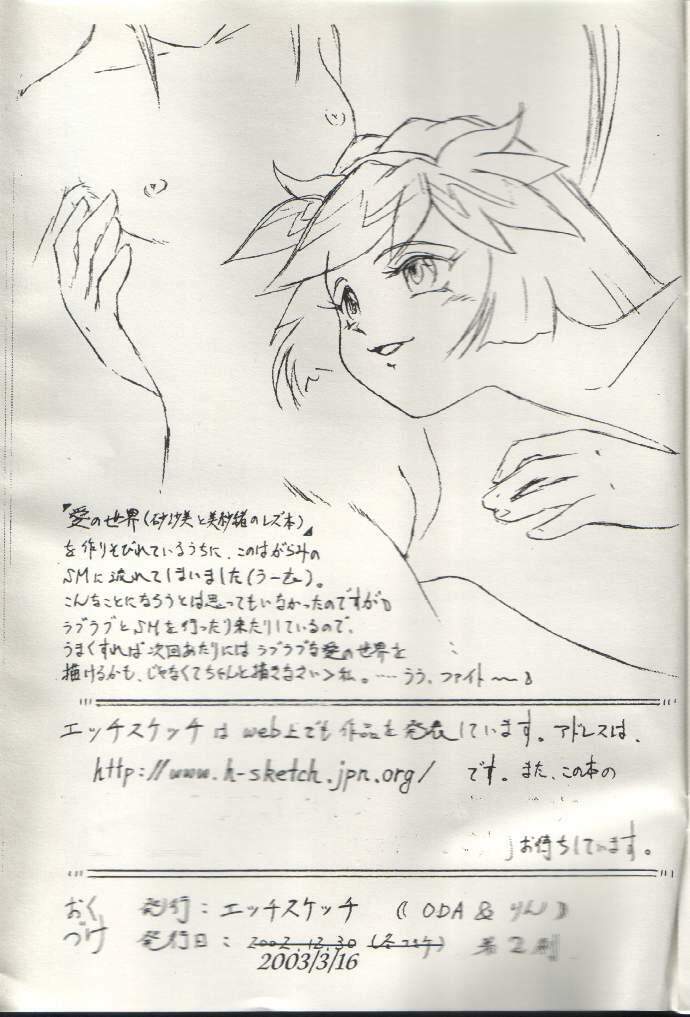 『愛の世界(砂沙美と美紗緒のレズ本)』
を作りそびれているうちに、このはがらみの
SMに流れてしまいました(うーむ)。
こんなことになろうとは思ってもいなかったのですが
ラブラブとSMを行ったり来たりしているので、
うまくすれば次回あたりにはラブラブな愛の世界を
描けるかも、じゃなくてちゃんと描きなさい>私。…うう、ファイト〜
エッチスケッチは web上でも作品を発表しています。アドレスは、
http://www.h-sketch.jpn.org/ です。また、この本の
お待ちしています。
おくづけ
発行:エッチスケッチ (ODA & りん)
発行日:2002.12.30(冬コミケ) 第2刷
2003/3/16